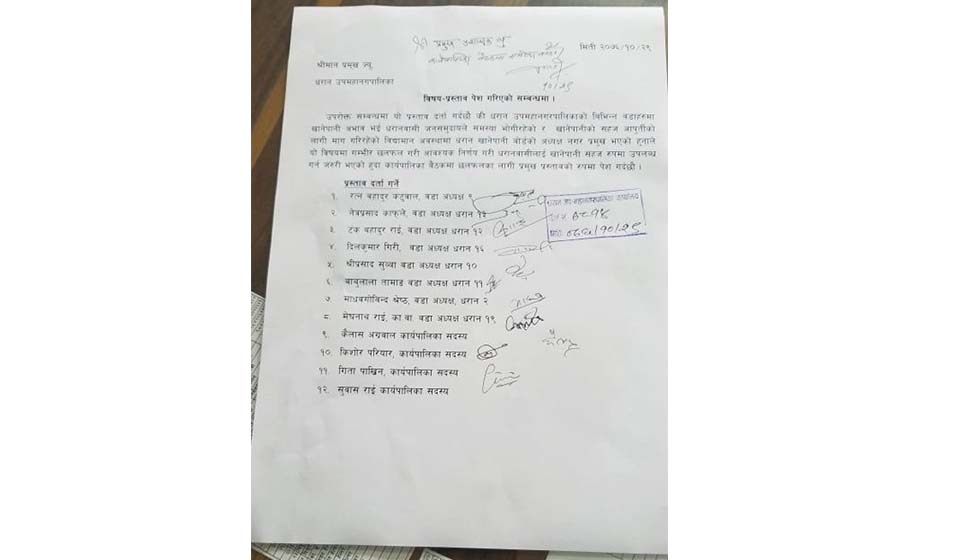 श्री प्रमुख प्रशासकीय ज्यु
मिती २०७६/१०/२९
श्रीमान प्रमुख ज्यु
धरान उपमहानगरपालिका
१०/२९
विषय-प्रस्ताव पेश गरिएको सम्बन्धमा ।
उपरोक्त सम्बन्धमा यो प्रस्ताव दर्ता गर्दछौं की धरान उपमहानगरपालिकाको विभिन्न वडाहरुमा
खानेपानी अभाव भई धरानवासी जनसमुदायले समस्या भोगीरहेको र खानेपानीको सहज आपुर्तीको
लागी माग गरिरहेको विद्यामान अवस्थामा धरान खानेपानी बोर्डको अध्यक्ष नगर प्रमुख भएको हुनाले
यो विषयमा गम्भीर छलफल गरी आवश्यक निर्णय गरी धरानवासीलाई खानेपानी सहज रुपमा उपलब्ध
गर्न जरुरी भएको हुदा कार्यपालिका बैठकमा छलफलका लागी प्रमुख प्रस्तावको रुपमा पेश गर्दछौं ।
प्रस्ताव दर्ता गर्ने
१. रत्न बहादुर कटुवाल, वडा अध्यक्ष ९
२. नेत्रप्रसाद काफ्ले, वडा अध्यक्ष धरान १३
३. टंक बहादुर राई, वडा अध्यक्ष धरान १२
४. दिलकुमार गिरी, वडा अध्यक्ष धरान १६
५. श्रीप्रसाद सुब्बा वडा अध्यक्ष धरान १०
६. बाबुलाला तामाङ वडा अध्यक्ष धरान ११
७. माधवगोविन्द श्रेष्ठ, वडा अध्यक्ष, धरान २
८. मेघनाथ राई, का.वा. वडा अध्यक्ष धरान १९
९. कैलास अग्रवाल कार्यपालिका सदस्य
१०. किशोर परियार, कार्यपालिका सदस्य
११. गिता पाख्रिन, कार्यपालिका सदस्य
१२. सुवास राई कार्यपालिका सदस्य